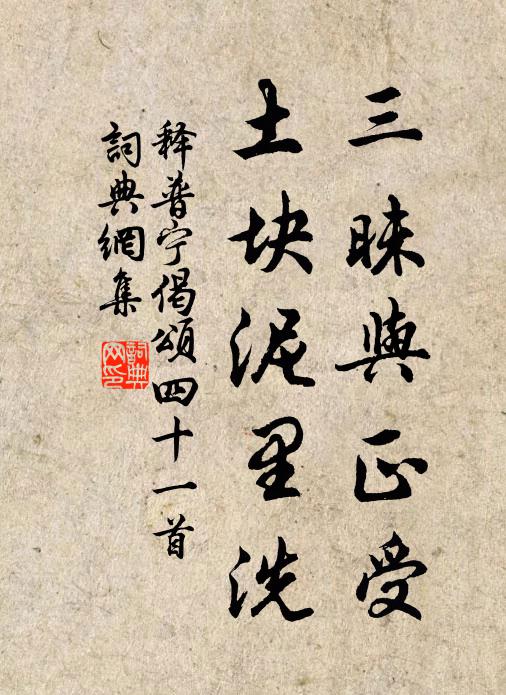 三昧與正受
土块泥里洗
释普宁偈頌四十一首
詞典網集
詞典
网印